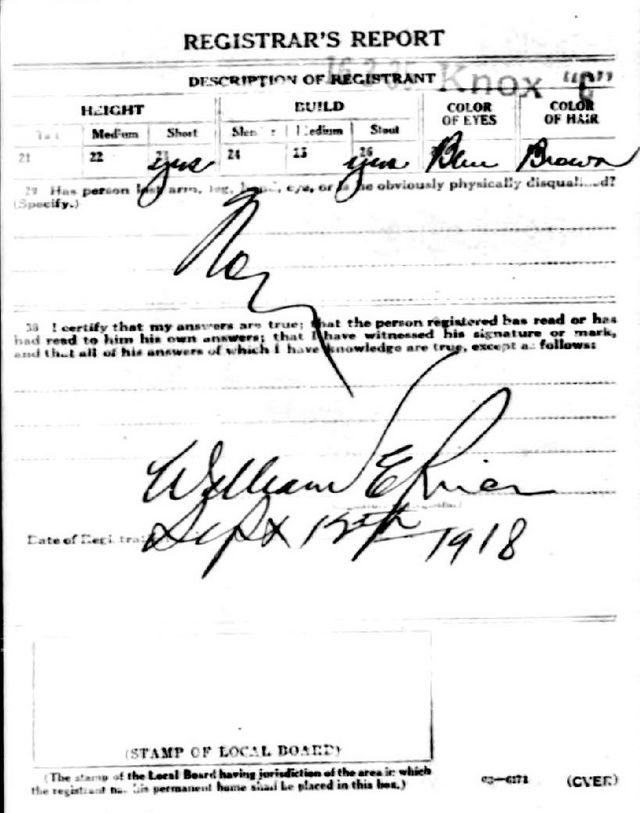 REGISTRAR'S REPORT
DESCRIPTION OF REGISTRANT Knox "C"
HEIGHT BUILD COLOR OF EYES COLOR OF HAIR
Tall Medium Short Slender Medium Stout
21 22 23 yes 24 25 26 yes Blue Brown
29 Has person lost arm, leg, hand, eye, or is he obviously physically disqualified?
(Specify.)
No
30 I certify that my answers are true; that the person registered has read or has
had read to him his own answers; that I have witnessed his signature or mark,
and that all of his answers of which I have knowledge are true, except as follows:
William E
Date of Registration Sept 12th 1918
(STAMP OF LOCAL BOARD)
(The stamp of the Local Board having jurisdiction of the area in which
the registrant has his permanent home shall be placed in this box.)
03—6171 (OVER)